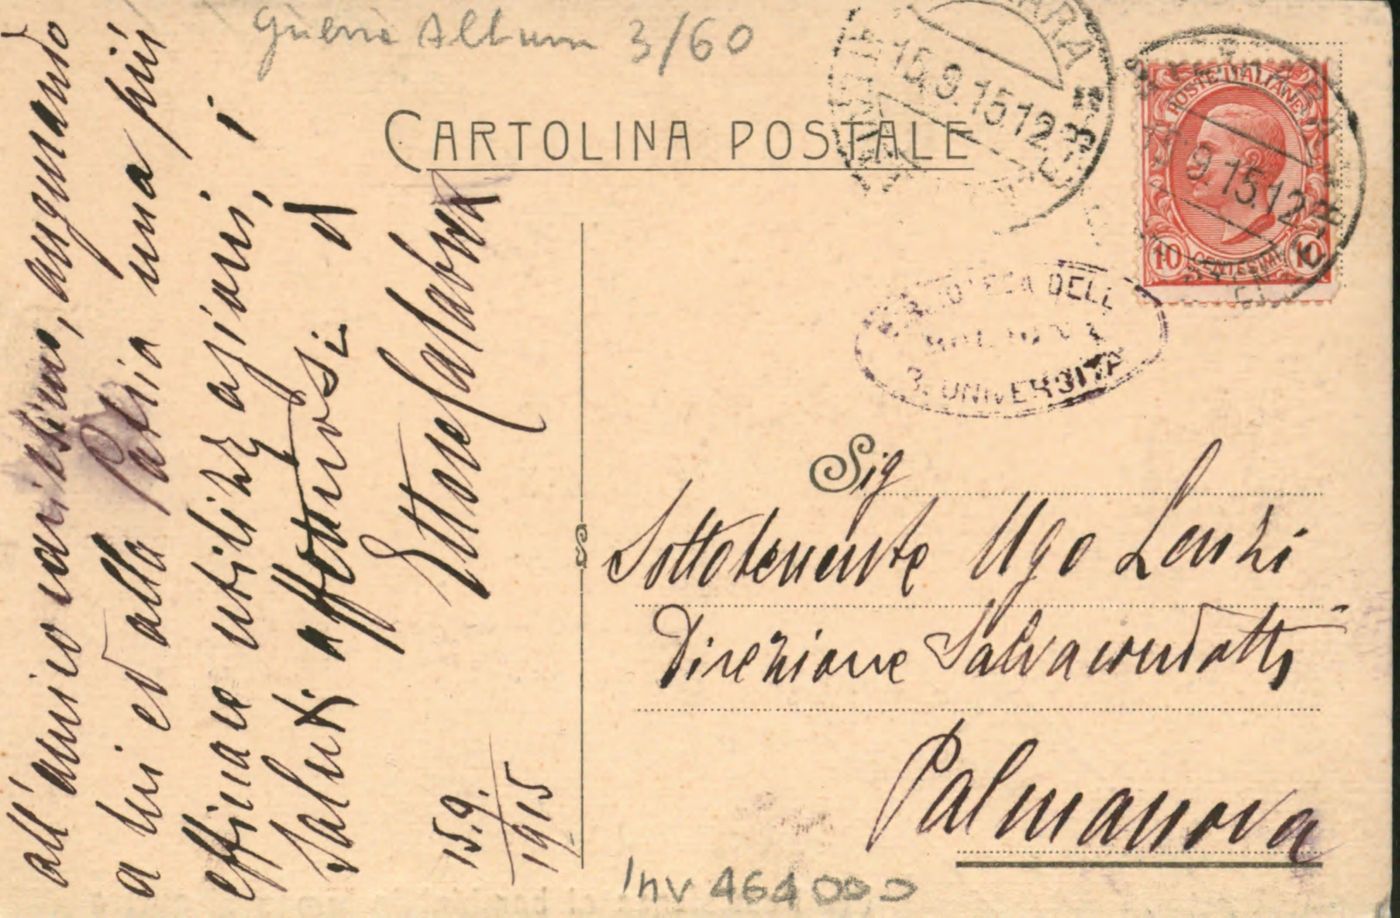 Guerra Album 3/60
CARTOLINA POSTALE
15.9.15.12
POSTE ITALIANE
9.15.12
10 CENTESIMI 10
DELL
UNIVERSITÀ
all'amico carissimo, augurando
a lui ed alla Patria una più
efficace utilizzazione, i
saluti affettuosi di
Ettore
15.9.
1915
Sig
Sottotenente Ugo Lenzi
Direzione Salvacondotti
Palmanova
Inv 464000